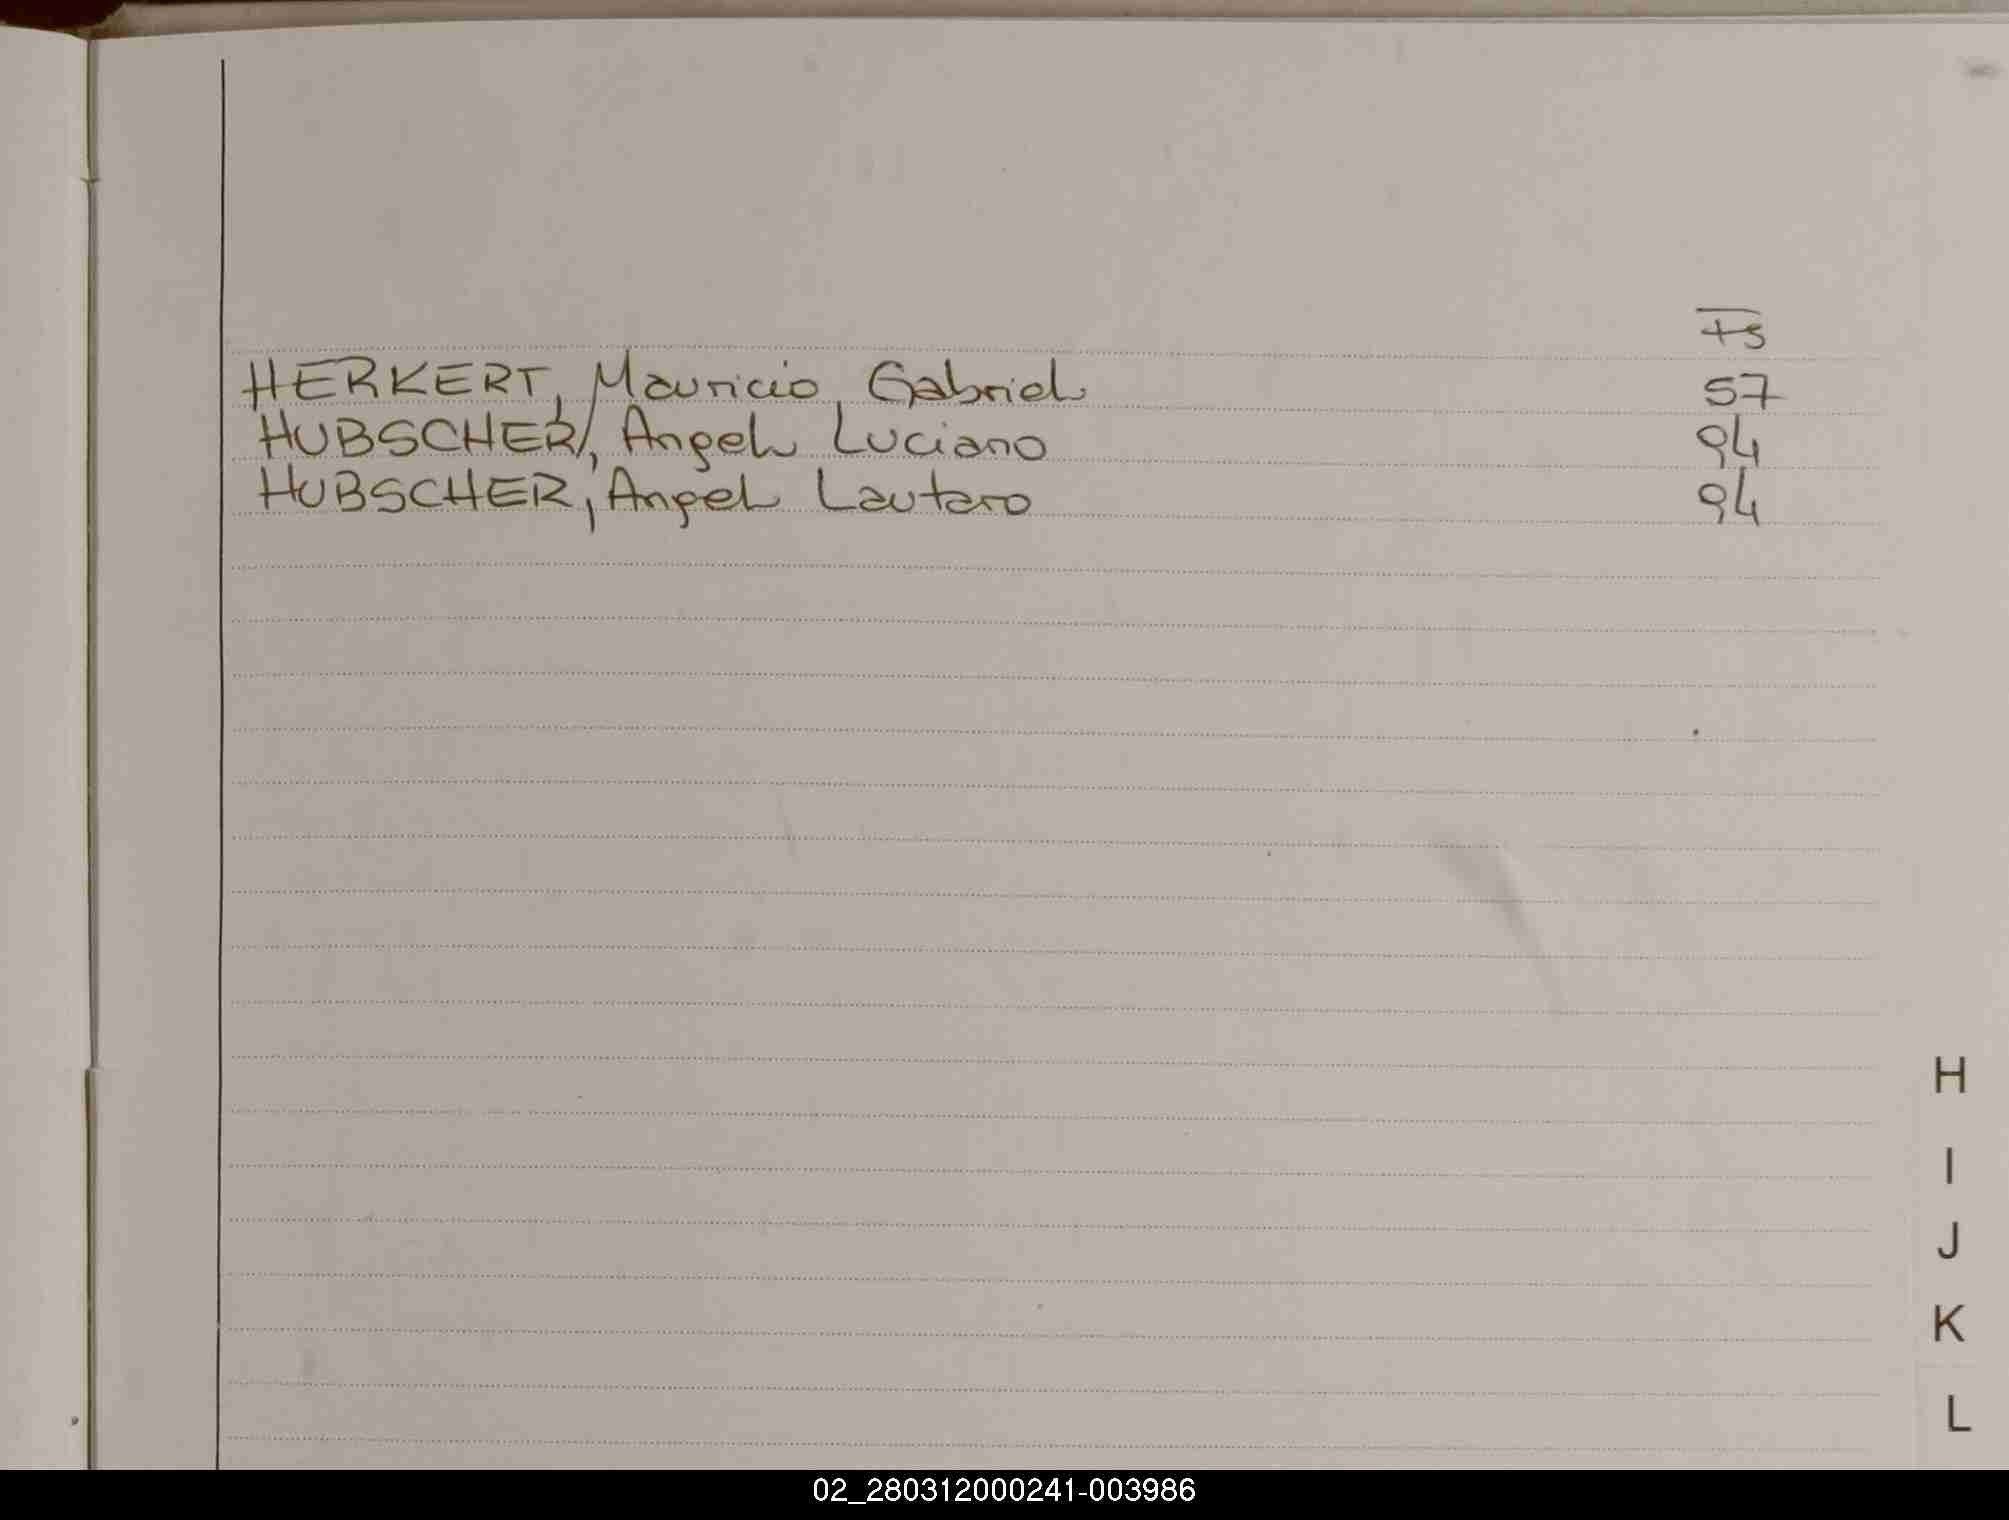 Fs
HERKERT, Mauricio, Gabriel 57
HUBSCHER, Angel Luciano 94
HUBSCHER, Angel Lautaro 94
H
I
J
K
L
02_280312000241-003986